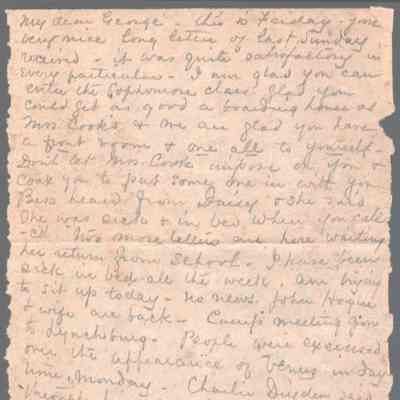 My dear George - this is Friday - your
very nice long letter of last Sunday
received - it was quite satisfactory in
every particular - I am glad you can
enter the Sophomore class, glad you
could get as good a boarding house as
Mrs. Cooks, & we are glad you have
a front room & one all to yourself -
Don't let Mrs. Cook impose on you &
coax you to put some one in with you
Bess heard from Daisy & she said
she was sick & in bed when you call
-ed. Two more letters are here waiting
her return from school - I have been
sick in bed all the week, am trying
to sit up today - no news. John Hogue
& wife are back - Camp meeting
to Lynchburg - People were excused
over the appearance of Venus in day
time, Monday - Charlie Dryden said